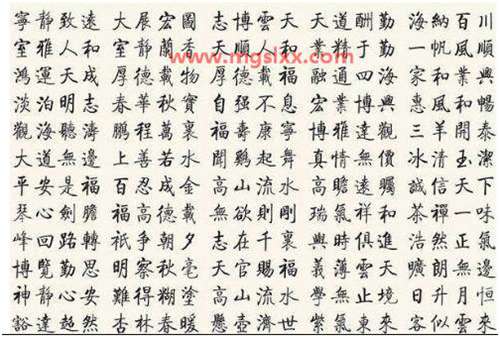 寧靜致遠 大展宏圖 志博雲天 天道酬勤 海納百川
室雅人和 室靜蘭 天順人和 業精于勤 一帆風順
鴻運天成 厚德載物 厚德載福 融通四海 家和業興
淡泊明志 春華秋實 自強不息 宏業博興 惠風和暢
觀海聽濤 鵬程萬裏 福壽康寧 博雅達觀 三羊開泰
大道無邊 上善若水 聞鷄起舞 真情無價 冰清玉潔
平安是福 百忍成金 高山流水 高瞻遠矚 誠信天下
琴心劍膽 福高德載 無欲則剛 瑞氣祥和 茶禪一味
峰回路轉 祇争朝夕 志在千裏 與時俱進 浩然正氣
博覽勤思 明察秋毫 天官賜福 義薄雲天 曠朗無邊
神靜心安 難得糊塗 高山流水 學無止境 日升月恒
豁達超然 杏林春暖 懸壺濟世 紫氣東來 客似雲來
www.mgslxx.com